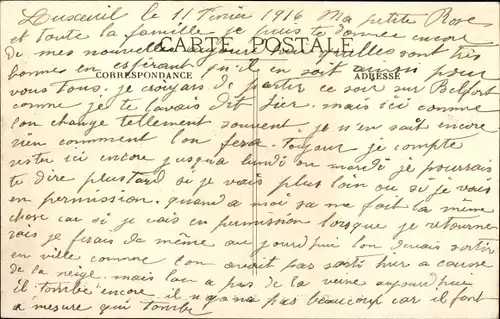 Luxeuil le 11 Fevrier 1916 Ma petite Rose
et toute la famille je puis te donner encore
de mes nouvelles aujourd'hui qu'elles sont très
CARTE POSTALE
bonnes en espérant qu'il en soit aussi pour
CORRESPONDANCE
ADRESSE
vous tous. je croyais de partir ce soir sur Belfort
comme je te l'avais dit hier. mais ici comme
l'on change tellement souvent je n'en sait encore
rien comment l'on fera. Toujour je compte
rester ici encore jusqu'a lundi ou mardi je pourrais
te dire plus tard si je vais plus loin ou si je vais
en permission. quand a moi sa me fait la même
chose car si je vais en permission lorsque je retourner
rais je ferais de même aujourd'hui l'on devais sortir
en ville comme l'on avait pas sorti hier a cause
de la neige. mais l'on a pas de la veine aujourd'hui
il tombe encore. il n'y en a pas beaucoup car il font
a mesure qui tombe